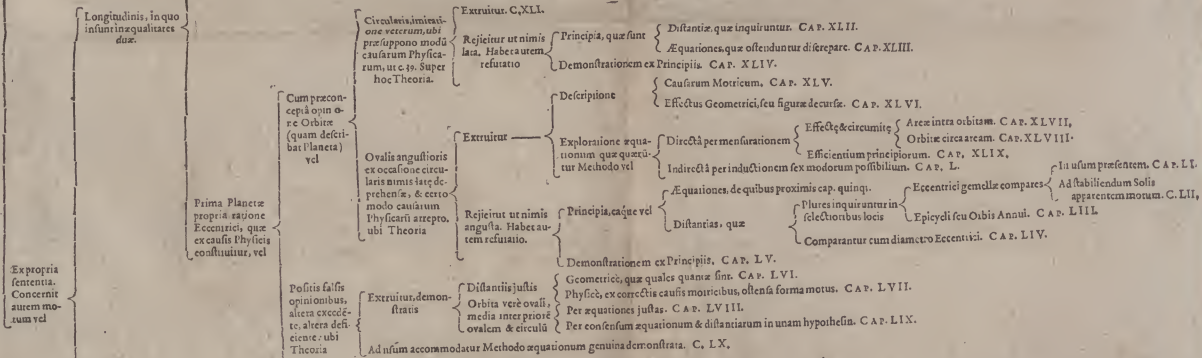 Longitudinis, in quo
insunt inæqualitates
duæ.
Ex propria
sententia.
Concernit
autem mo-
tum vel
Prima Planetæ
propria ratione
Eccentrici, quæ
ex causis Physicis
constituitur, vel
Cum præcon-
ceptâ opin o-
ne Orbitæ
(quam descri-
bat Planeta)
vel
Circularis, imitati-
one veterum, ubi
præsuppono modũ
causarum Physica-
rum, ut c. 39. Super
hoc Theoria.
Extruitur. C, XLI.
Rejicitur ut nimis
lata. Habet autem
refutatio
Principia, quæ sunt
Distantiæ, quæ inquiruntur. CAP. XLII.
Æquationes, quæ ostenduntur discrepare. CAP. XLIII.
Demonstrationem ex Principiis. CAP. XLIV.
Ovalis angustioris
ex occasione circu-
laris nimis latę de-
prehensæ, & certo
modo causarum
Physicarũ arrepto.
ubi Theoria
Extruitur
Descriptione
Causarum Motricum. CAP. XLV.
Effectus Geometrici, seu figuræ decursæ. CAP. XLVI.
Exploratione æqua-
tionum quæ quærũ-
tur Methodo vel
Directâ per mensurationem
Effectę & circumitę
Areæ intra orbitam. CAP. XLVII,
Orbitæ circa aream. CAP. XLVIII.
Efficientium principiorum. CAP. XLIX,
Indirectâ per inductionem sex modorum possibilium. CAP, L.
Rejicitur ut nimis
angusta. Habet au-
tem refutatio.
Principia, eaque vel
Æquationes, de quibus proximis cap. quinq;.
Distantias, quæ
Plures inquiruntur in
selectioribus locis
Eccentrici gemellæ compares
In usum præsentem. CAP. LI.
Ad stabiliendum Solis
apparentem motum. C. LII,
Epicycli seu Orbis Annui. CAP. LIII.
Comparantur cum diametro Eccentrici. CAP. LIV.
Demonstrationem ex Principiis, CAP. LV.
Positis falsis
opinionibus,
altera excedē-
te, altera defi-
ciente: ubi
Theoria
Extruitur, demon-
stratis
Distantiis justis
Geometricè, quæ quales quantæ sint. CAP. LVI.
Physicè, ex correctis causis motricibus, ostensa forma motus. CAP. LVII.
Orbita verè ovali,
media inter priorē
ovalem & circulũ
Per æquationes justas. CAP. LVIII.
Per consensum æquationum & distantiarum in unam hypothesin. CAP. LIX.
Ad usum accommodatur Methodo æquationum genuina demonstrata. C, LX,